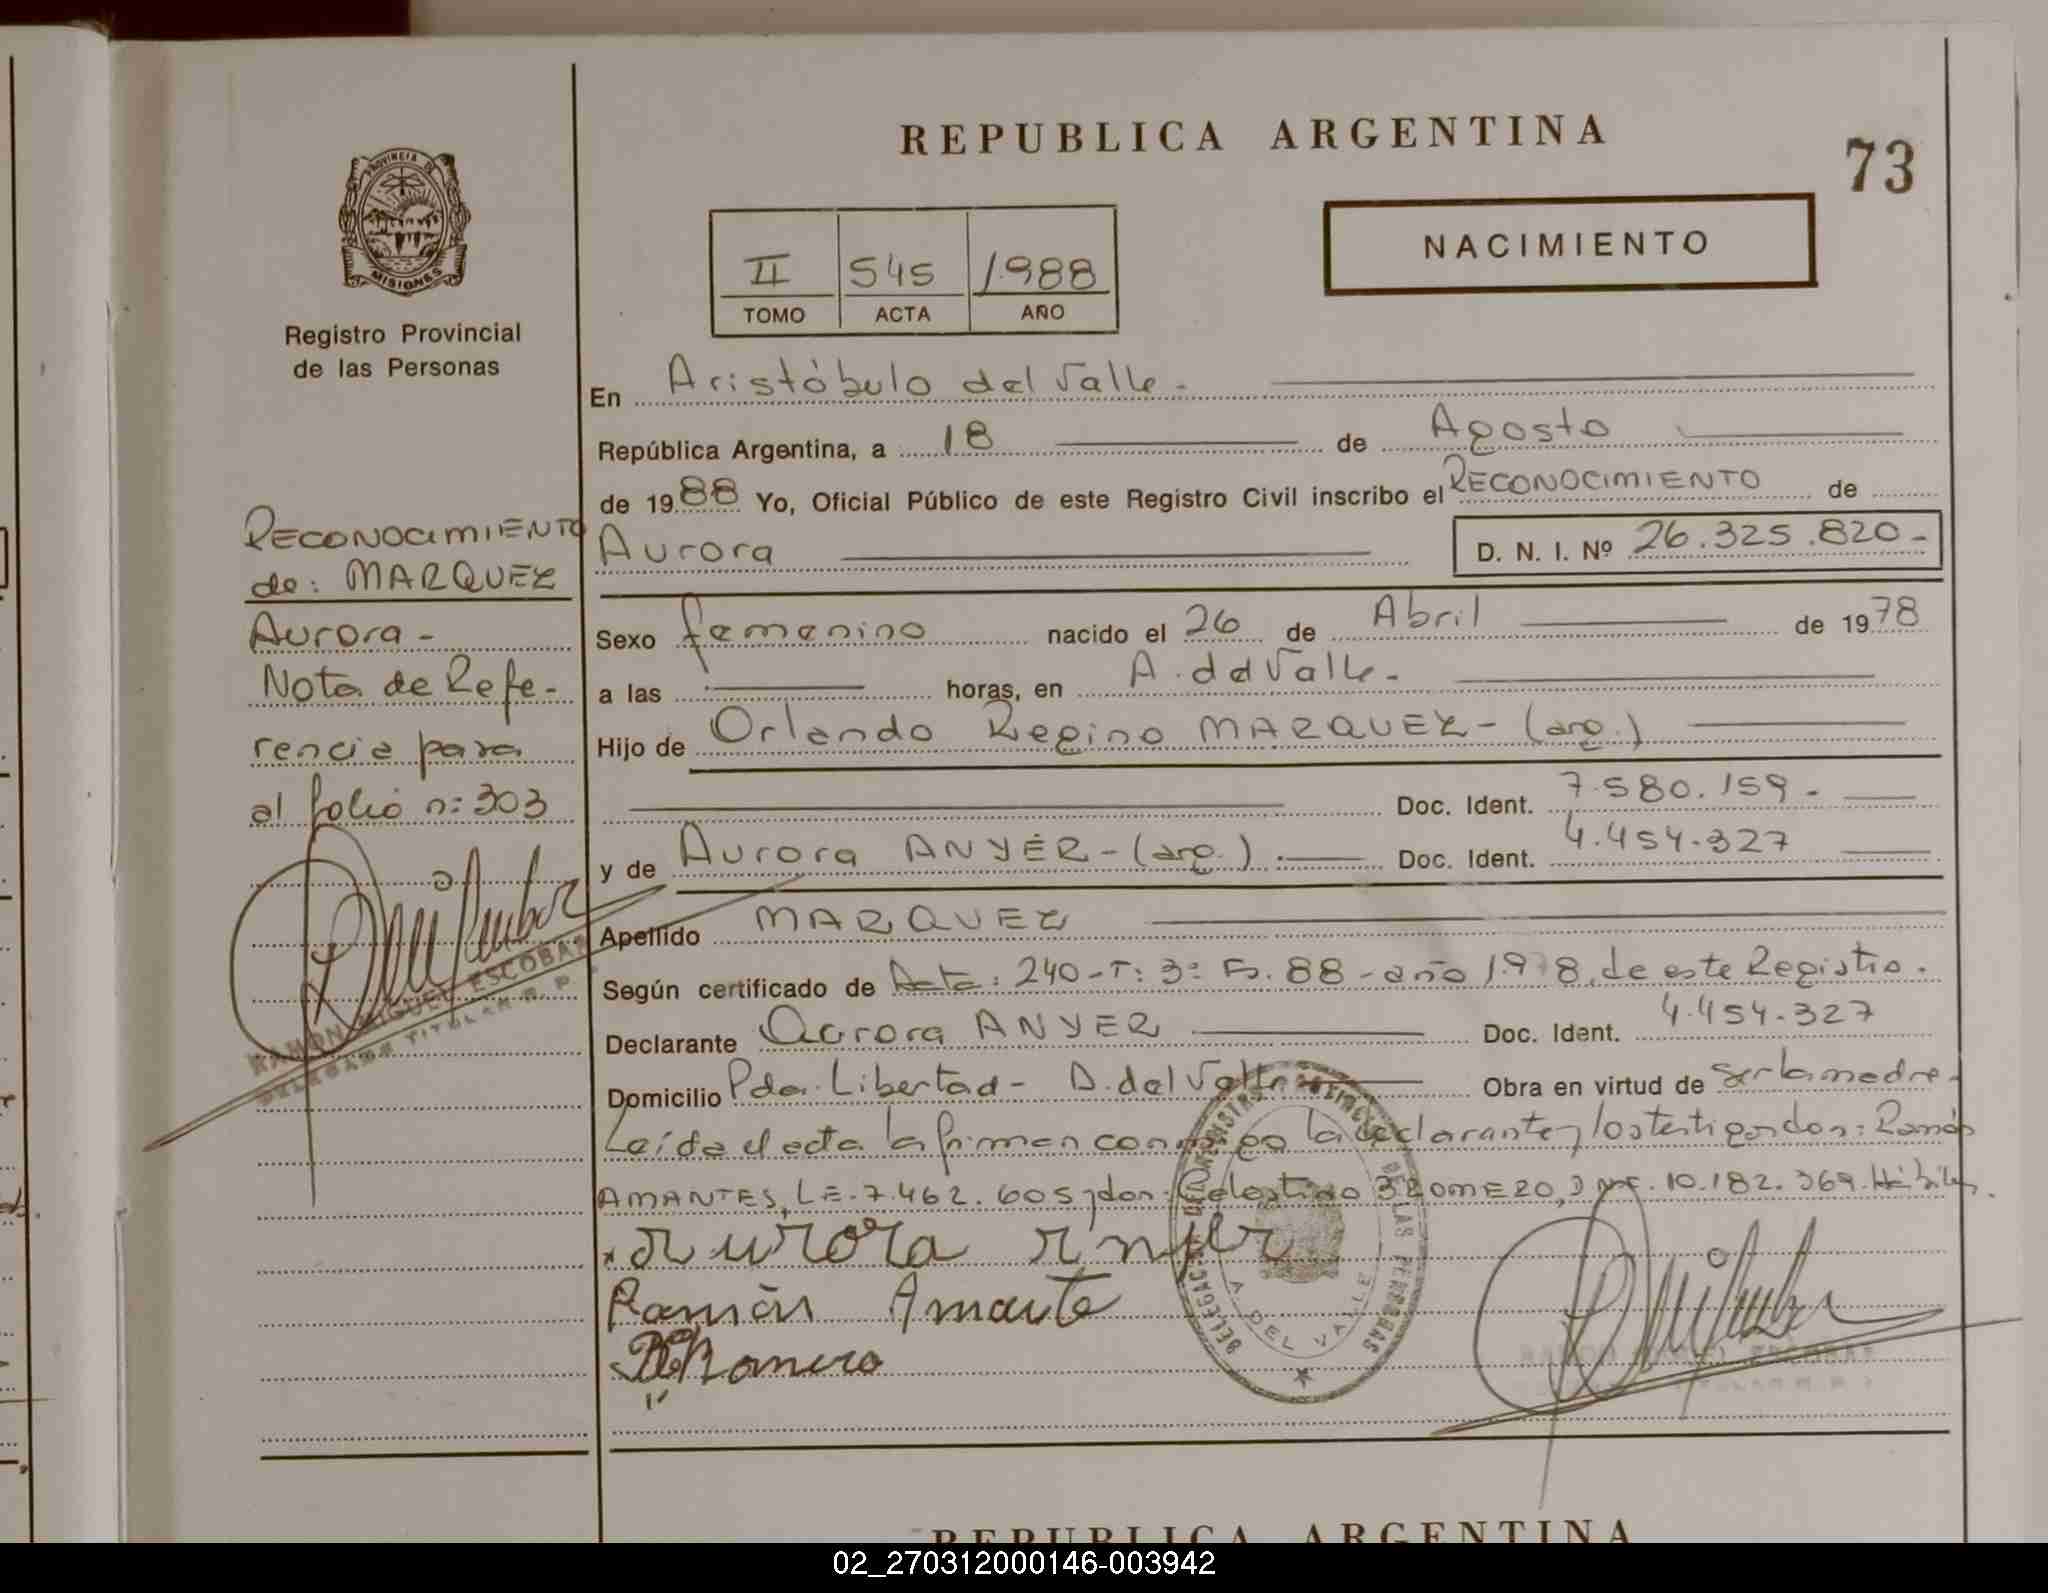 REPUBLICA ARGENTINA
73
PROVINCIA DE
MISIONES
Registro Provincial
de las Personas
II 545 1.988
TOMO ACTA AÑO
NACIMIENTO
En Aristóbulo del Valle.-
República Argentina, a 18 de Agosto
de 1988 Yo, Oficial Público de este Registro Civil inscribo el RECONOCIMIENTO de
Aurora D. N. I. Nº 26.325.820-
Sexo femenino nacido el 26 de Abril de 1978
a las horas, en A. del Valle.-
Hijo de Orlando Regino MARQUEZ- (arg.)
Doc. Ident. 7.580.159.-
y de Aurora ANYÉR-(arg.).- Doc. Ident. 4.454.327
Apellido MARQUEZ
Según certificado de Acta: 240-T: 3º Fº. 88-año 1.978, de este Registro.
Declarante Aurora ANYER Doc. Ident. 4.454.327
Domicilio Pda. Libertad- A. del Valle Obra en virtud de ser la madre.
Leída el acta la firman conmigo la declarante y los testigos don: Ramón
AMANTES, L.E. 7.462.605 y don: Celestino ROMERO, 10.182.369. Hábiles.
Aurora Anyer
Ramón Amante
Romero
RECONOCIMIENTO
de: MARQUEZ
Aurora-
Nota de Refe-
rencia para
al folio n: 303
RAMON MIGUEL ESCOBAR
DELEGADO TITULAR R. P.
DE LAS PERSONAS
A. DEL VALLE
REPUBLICA ARGENTINA
02_270312000146-003942